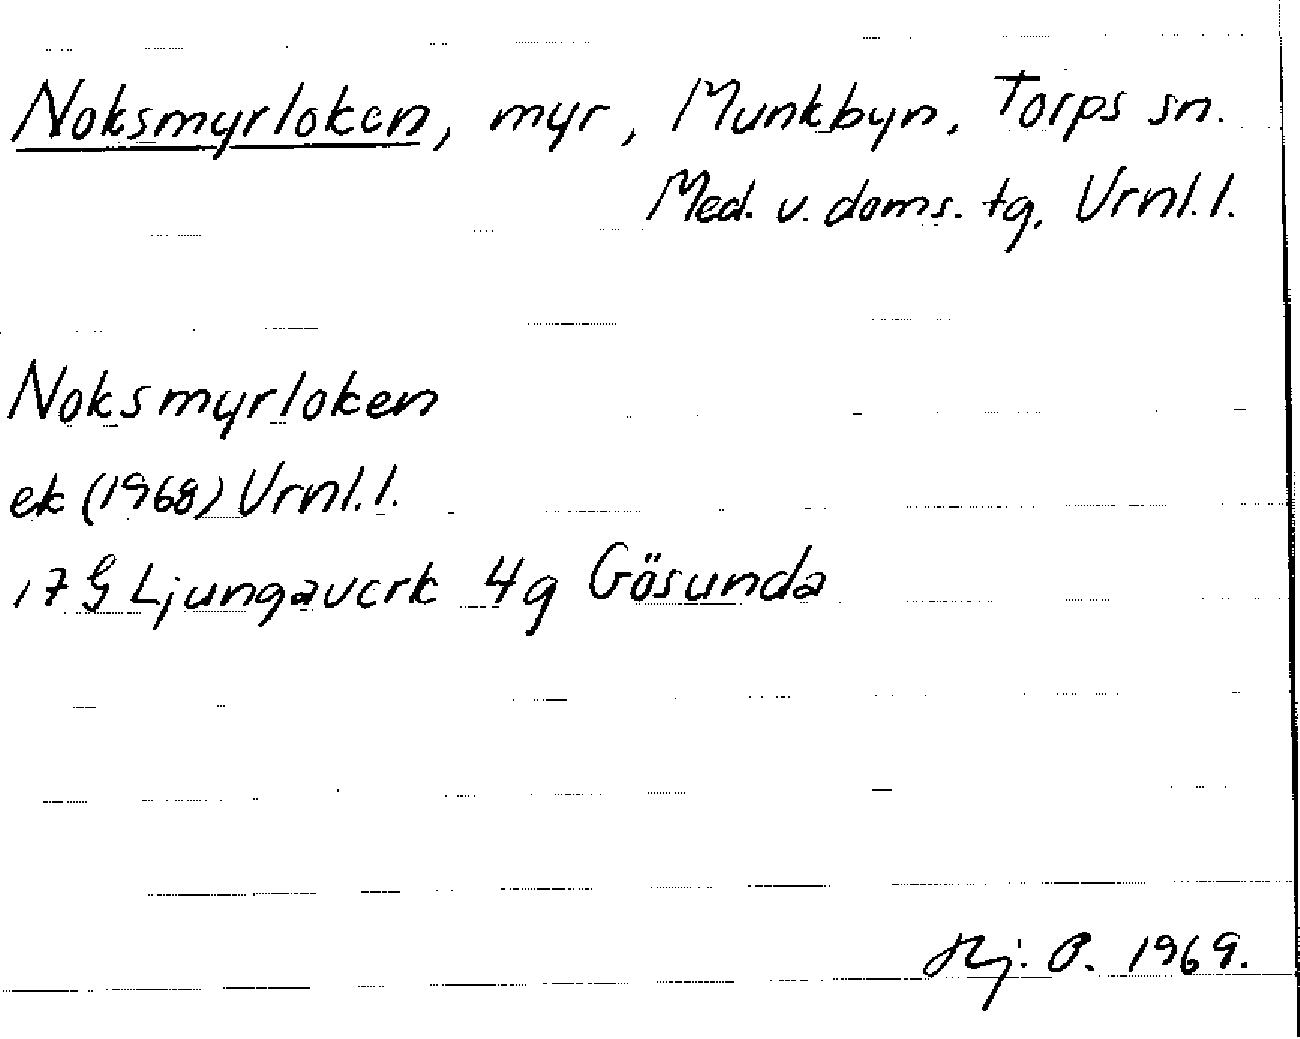 Noksmyrloken, myr, Munkbyn, Torps sn.
Med. v. doms. tg, Vrnl. l.
Noksmyrloken
ek (1968) Vrnl. l.
17 G Ljungaverk 4g Gösunda
Hj. P. 1969.